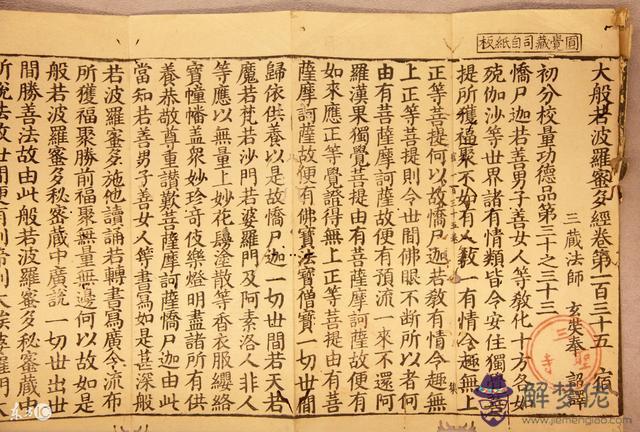 圓覺藏司自紙板
大般若波羅蜜多經卷第一百三十五 宿
三藏法師 玄奘奉 詔譯
初分校量功德品第三十之三十三
憍尸迦若善男子善女人等教化十方各如
殑伽沙等世界諸有情類皆令安住獨覺菩
提所獲福聚不如有人教一有情令趣無上
正等菩提何以故憍尸迦若教有情令趣無
上正等菩提則令世間佛眼不斷所以者何
由有菩薩摩訶薩故便有預流一來不還阿
羅漢果獨覺菩提由有菩薩摩訶薩故便有
如來應正等覺證得無上正等菩提由有菩
薩摩訶薩故便有佛寶法寶僧寶一切世間
歸依供養以是故憍尸迦一切世間若天若
魔若梵若沙門若婆羅門及阿素洛人非人
等應以無量上妙花鬘塗散等香衣服纓絡
寶幢幡蓋眾妙珍奇伎樂燈明盡諸所有供
養恭敬尊重讚歎菩薩摩訶薩憍尸迦由此
當知若善男子善女人等書寫如是甚深般
若波羅蜜多施他讀誦若轉書寫廣令流布
所獲福聚勝前福聚無量無邊何以故如是
般若波羅蜜多秘密藏中廣說一切世出世
間勝善法故由此般若波羅蜜多秘密藏中
所說法故世間便有剎帝利大族婆羅門
三聖寺
解夢佬
www.jiemenglao.com